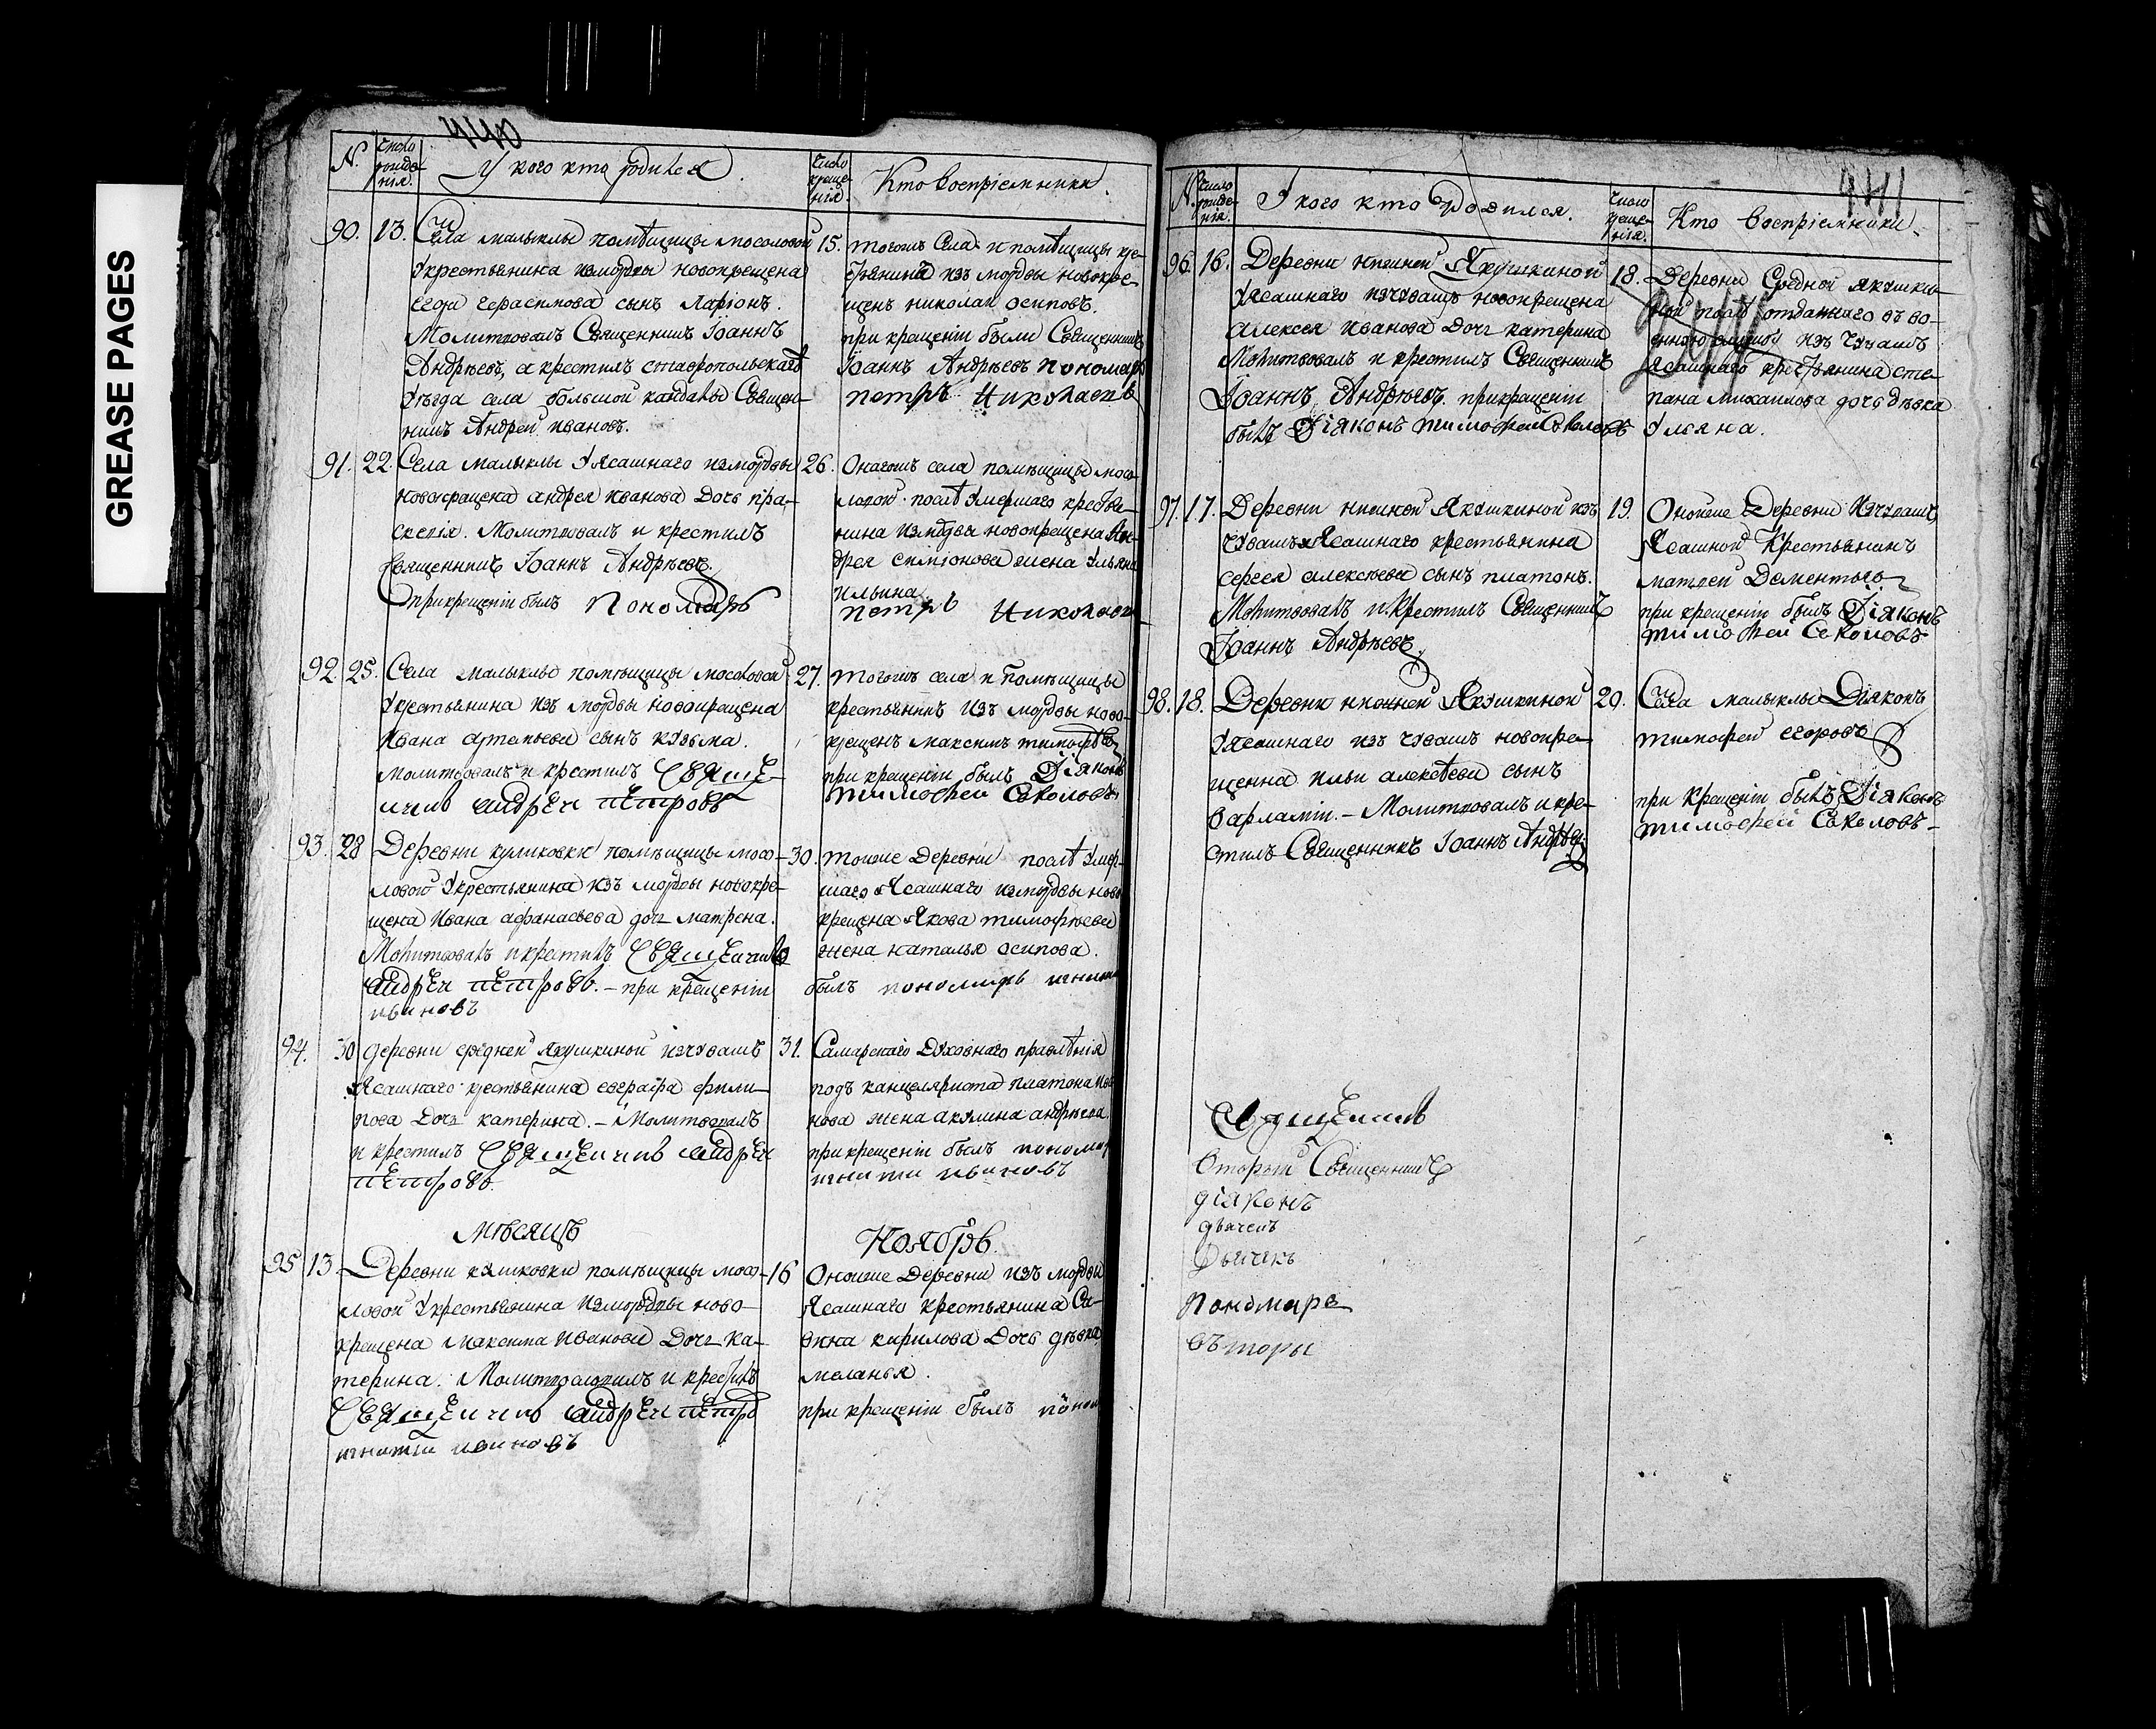 GREASE PAGES
440
N. Число рожде-нія. У кого кто родился. Число креще-нія. Кто воспріемники.
90. 13. Села малыклы помѣщицы мосоловой
У крестьянина измордвы новокрещена
Егора герасимова сынъ Ларіонъ.
Молитвовалъ Священникъ Іоаннъ
Андрѣевъ, а крестилъ ставропольскаго
Уѣзда села большой кандалы Священ-
никъ Андрей Ивановъ.
15. тогожъ Села и помѣщицы кре-
стьянинъ изъ мордвы новокре-
щенъ николай осиповъ.
при крещеніи были Священникъ
Іоаннъ Андрѣевъ пономарь
петръ николаевъ
91. 22. Села малыклы У Ясашнаго измордвы
новокращена андрея иванова дочь пра-
скевія. Молитвовалъ и крестилъ
Священникъ Іоаннъ Андрѣевъ.
При крещеніи былъ Пономарь
26. Оногожъ села помѣщицы мосо-
ловой послѣ Умершаго крестья-
нина измордвы новокрещена Ан-
дрея симіонова жена Ульяна
ильина
петръ николаевъ
92. 25. Села малыклы помѣщицы мосоловой
У крестьянина изъ мордвы новокращена
Ивана артемьева сынъ кузьма.
молитвовалъ и крестилъ Священ-
никъ андреи петровъ
27. тогожъ села и помѣщицы
крестьянинъ изъ мордвы ново-
крещенъ максимъ тимофѣевъ
при крещеніи былъ Діяконъ
тимофей Соколовъ
93. 28 Деревни куликовки помѣщицы мосо-
ловой У крестьянина изъ мордвы новокре-
щена Ивана афанасьева дочь матрена.
Молитвовалъ и крестилъ Священникъ
андреи петровъ. – при крещеніи
ивановъ
30. тоиже Деревни послѣ Умер-
шаго Ясашнаго измордвы ново
крещена Якова тимофѣева
жена наталья осипова.
былъ пономарь игнати
94. 30 деревни средней якушкиной изчувашъ
Ясашнаго крестьянина евграфа фили-
пова дочь катерина. – Молитвовалъ
и крестилъ Священникъ андреи
петровъ.
31. Самарскаго Духовнаго правлѣнія
подъ канцеляриста платона ива
нова жена акулина андрѣева
при крещеніи былъ пономар
игнати ивановъ
Мѣсяцъ Ноябрь.
95 13. Деревни куликовки помѣщицы мосо-
ловой У крестьянина измордвы ново-
крещена максима Иванова Дочь ка-
терина. Молитвовалъ и крестилъ
Священникъ андреи петро
игнати ивановъ
16 Оноиже Деревни изъ мордвы
Ясашнаго крестьянина Са-
вина кирилова Дочь дѣвка
меланья.
при крещеніи былъ поном
441
N. Число рожде-нія. У кого кто родился. Число креще-нія. Кто воспріемники.
96. 16. Деревни нижней Якушкиной
У Ясашнаго изчувашъ новокрещена
алексея Иванова Дочь катерина
Молитвовалъ и крестилъ Священникъ
Іоаннъ Андрѣевъ. при крещеніи
былъ Діяконъ тимофей Соколовъ
18. Деревни Средней якушки-
ной послѣ отданнаго въ во-
енную службу изъ Чувашъ
Ясашнаго крестьянина сте-
пана михаилова дочь дѣвка
Ульяна.
97. 17. Деревни нижней Якушкиной изъ
чувашъ Ясашнаго крестьянина
сергея алексѣева сынъ платонъ.
Молитвовалъ и Крестилъ Священникъ
Іоаннъ Андрѣевъ.
19. Оноиже Деревни Изчувашъ
Ясашной Крестьянинъ
матвей Дементьевъ
при крещеніи былъ Діяконъ
тимофей Соколовъ
98. 18. Деревни нижней Якушкиной
У Ясашнаго изъ чувашъ новокре-
щенна ильи алексѣева сынъ
Варламіи. – Молитвовалъ и кре-
стилъ Священникъ Іоаннъ Андрѣевъ
20. Села малыклы Діяконъ
тимофей егоровъ
при крещеніи былъ Діяконъ
тимофей Соколовъ –
Священникъ
Вторый Священникъ
діяконъ
дьячекъ
Дьячекъ
Пономарь
въторы